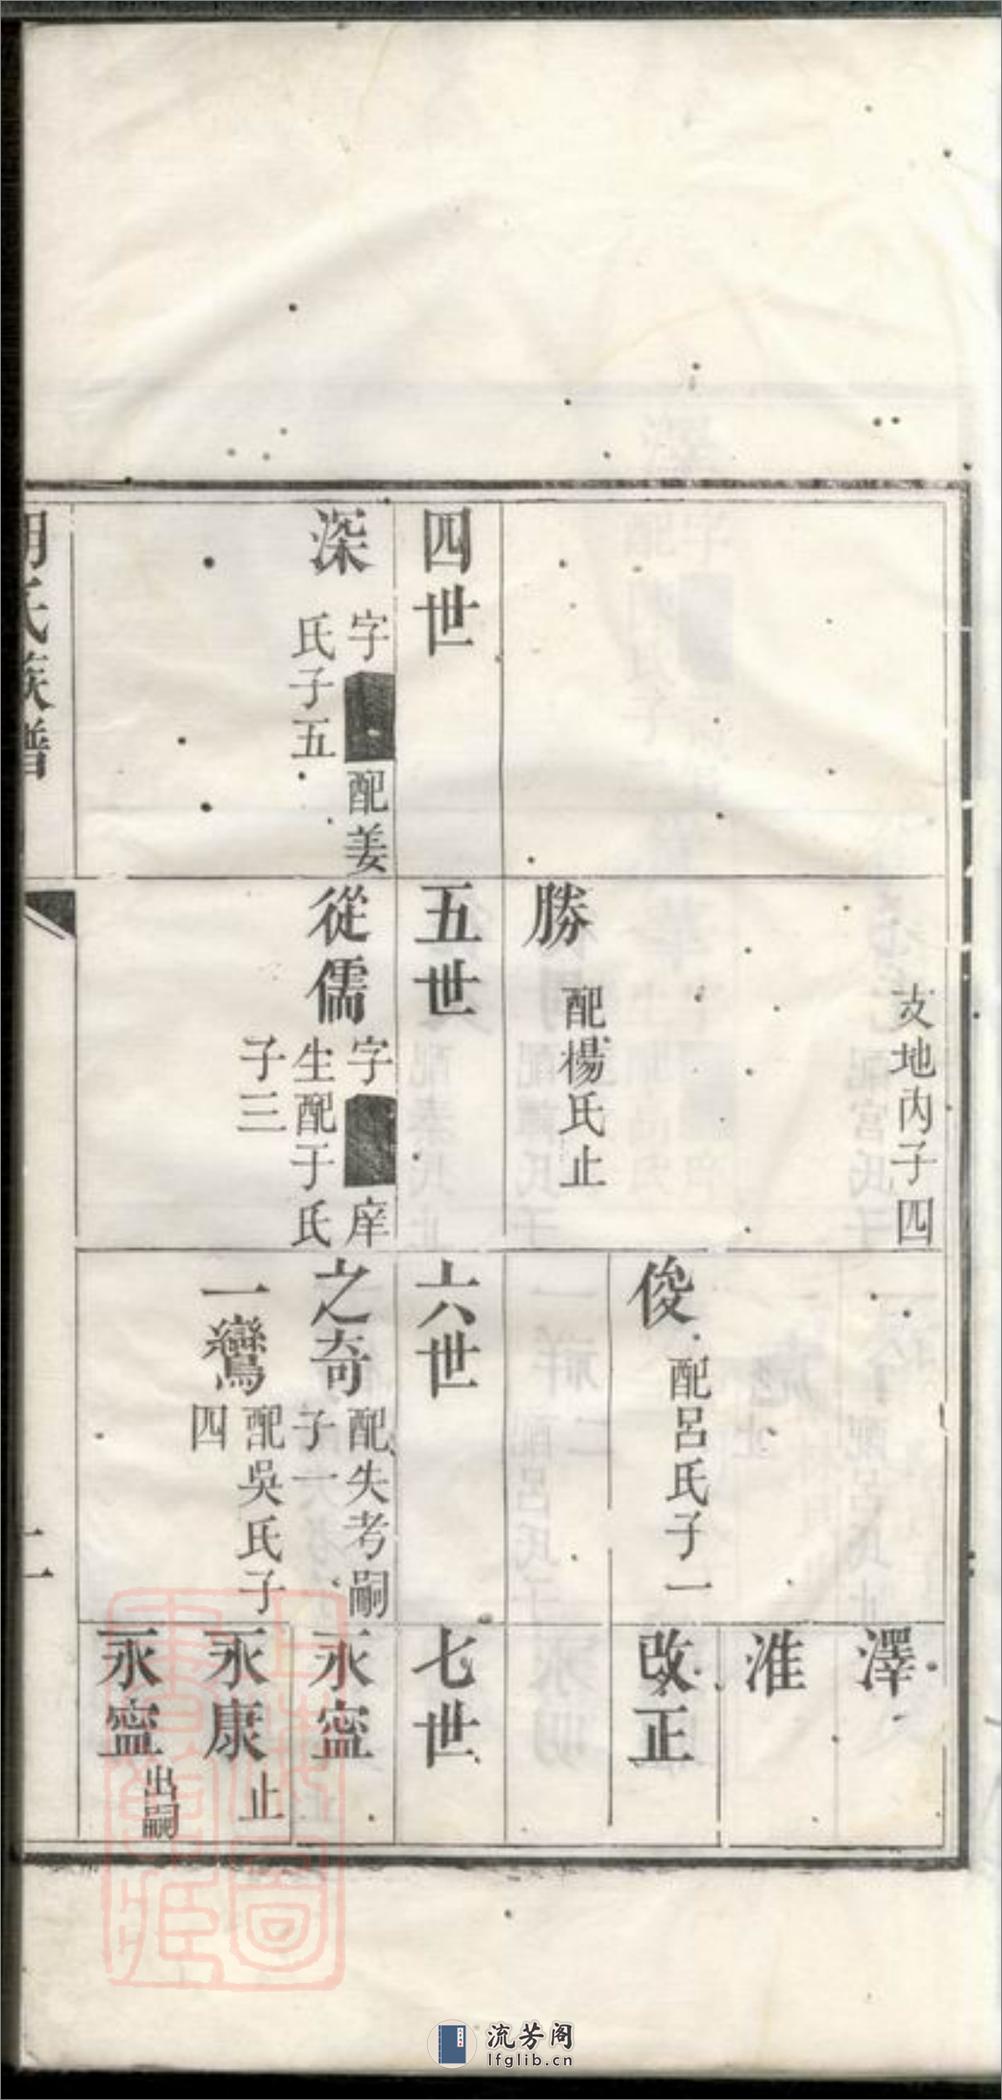 支地內子四
澤
淮
俊
配呂氏子一
改正
勝
配楊氏止
四世
五世
六世
七世
深
字
配姜
氏子五
從儒
字
庠
生配于氏
子三
之奇
配失考嗣
子一
永寍
一鸞
配吳氏子
四
永康
止
永寍
出嗣
胡氏族譜
二
上海圖
書館藏
流芳阁
lfglib.cn